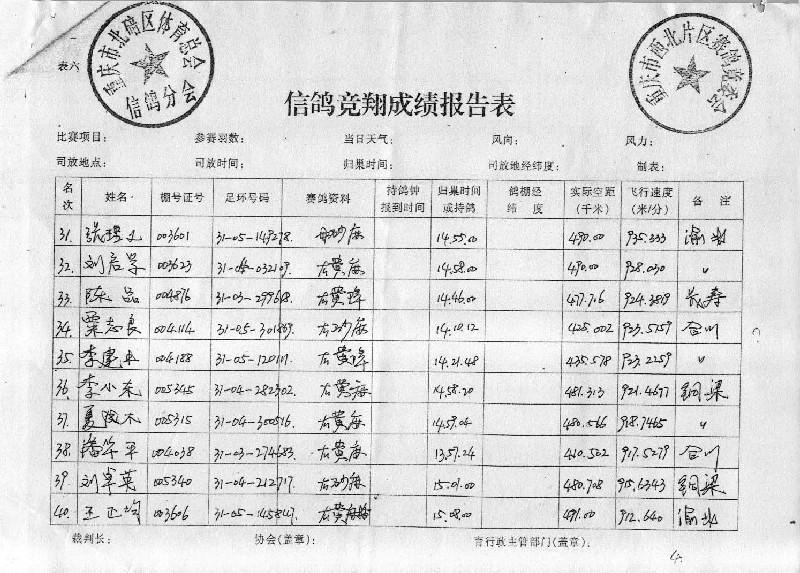 重庆市北碚区体育总会
信鸽分会
重庆市西北片区赛鸽竞委会
表六
信鸽竞翔成绩报告表
比赛项目： 参赛羽数： 当日天气： 风向： 风力：
司放地点： 司放时间： 归巢时间： 司放地经纬度： 制表：
名次 姓名 棚号证号 足环号码 赛鸽资料 持鸽钟报到时间 归巢时间或持鸽 鸽棚经纬度 实际空距(千米) 飞行速度(米/分) 备注
31. 003601 31-05-149278. 14.55.00 490.00 935.333 渝北
32. 刘启学 003623 14.58.00 490.00 928.030 〃
33. 陈品 004876 31-03-299618. 14.46.00 477.716 924.3819 长寿
34. 粟志良 004114 31-05-301869. 425.002 923.5759 合川
35 李建平 004188 14.21.48 435.578 923.2259 〃
36. 李小东 005345 31-04-282302. 14.58.20 481.313 921.4697 铜梁
37. 005315 31-04-300516. 14.59.04 480.566 918.7465 〃
38. 潘华平 004038 31-03-274683. 13.57.24 410.502 917.5279 合川
39. 刘卓英 005340 31-04-212717. 15.01.00 480.708 915.6343 铜梁
40. 王正均 003606 15.08.00 491.00 912.640 渝北
裁判长： 协会(盖章)： 育行政主管部门(盖章)：
4.